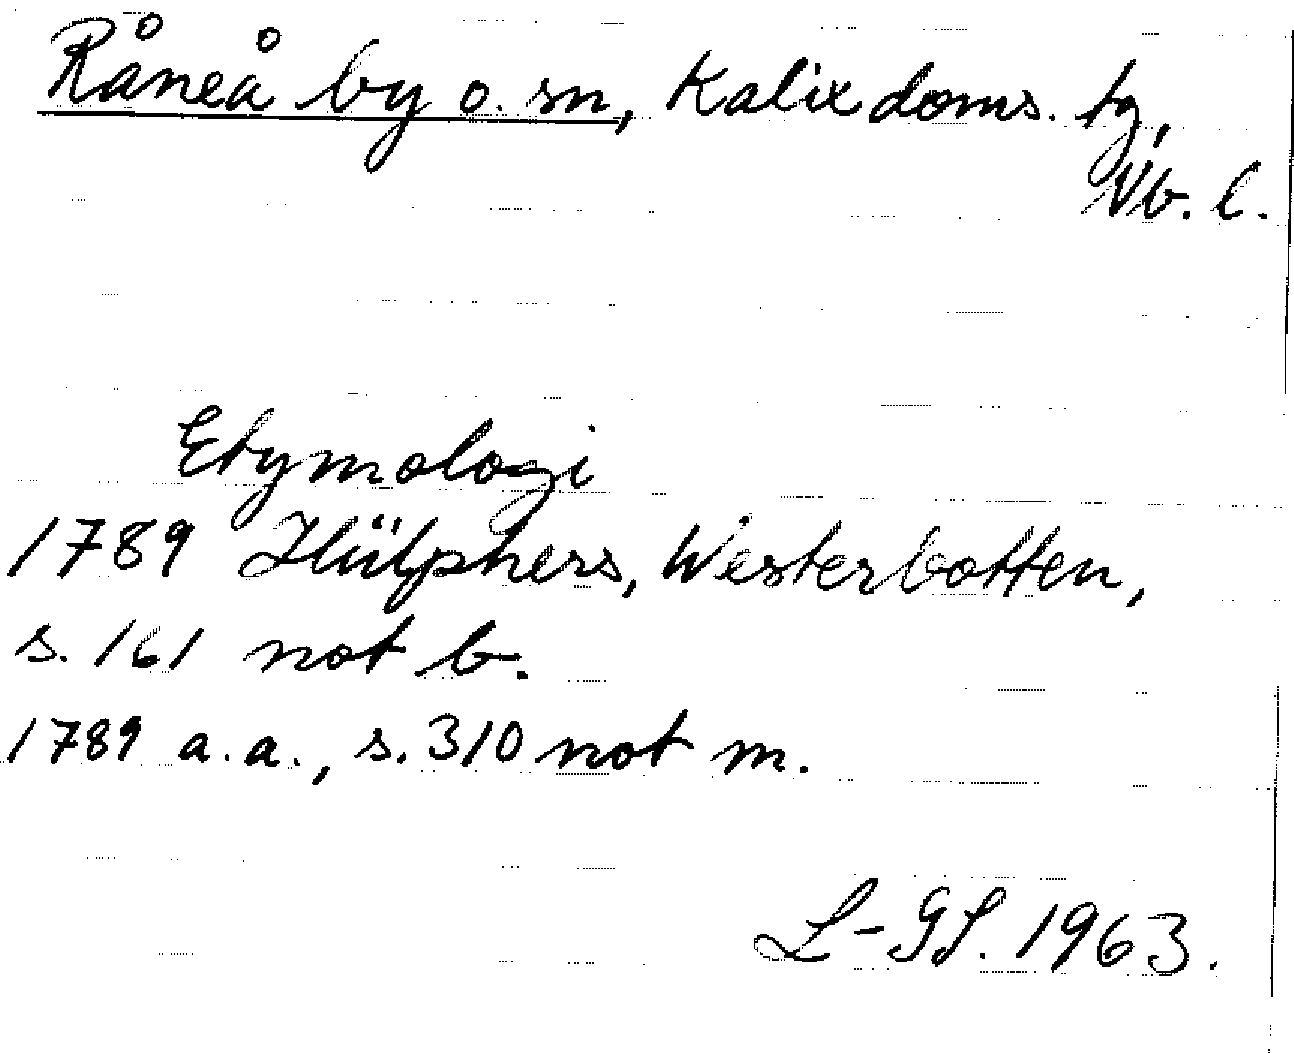 Råneå by o. sn, Kalix doms. tg,
Vb. l.
Etymologi
1789 Hülphers, Westerbotten,
s. 161 not b.
1789 a.a., s. 310 not m.
L-GL. 1963.